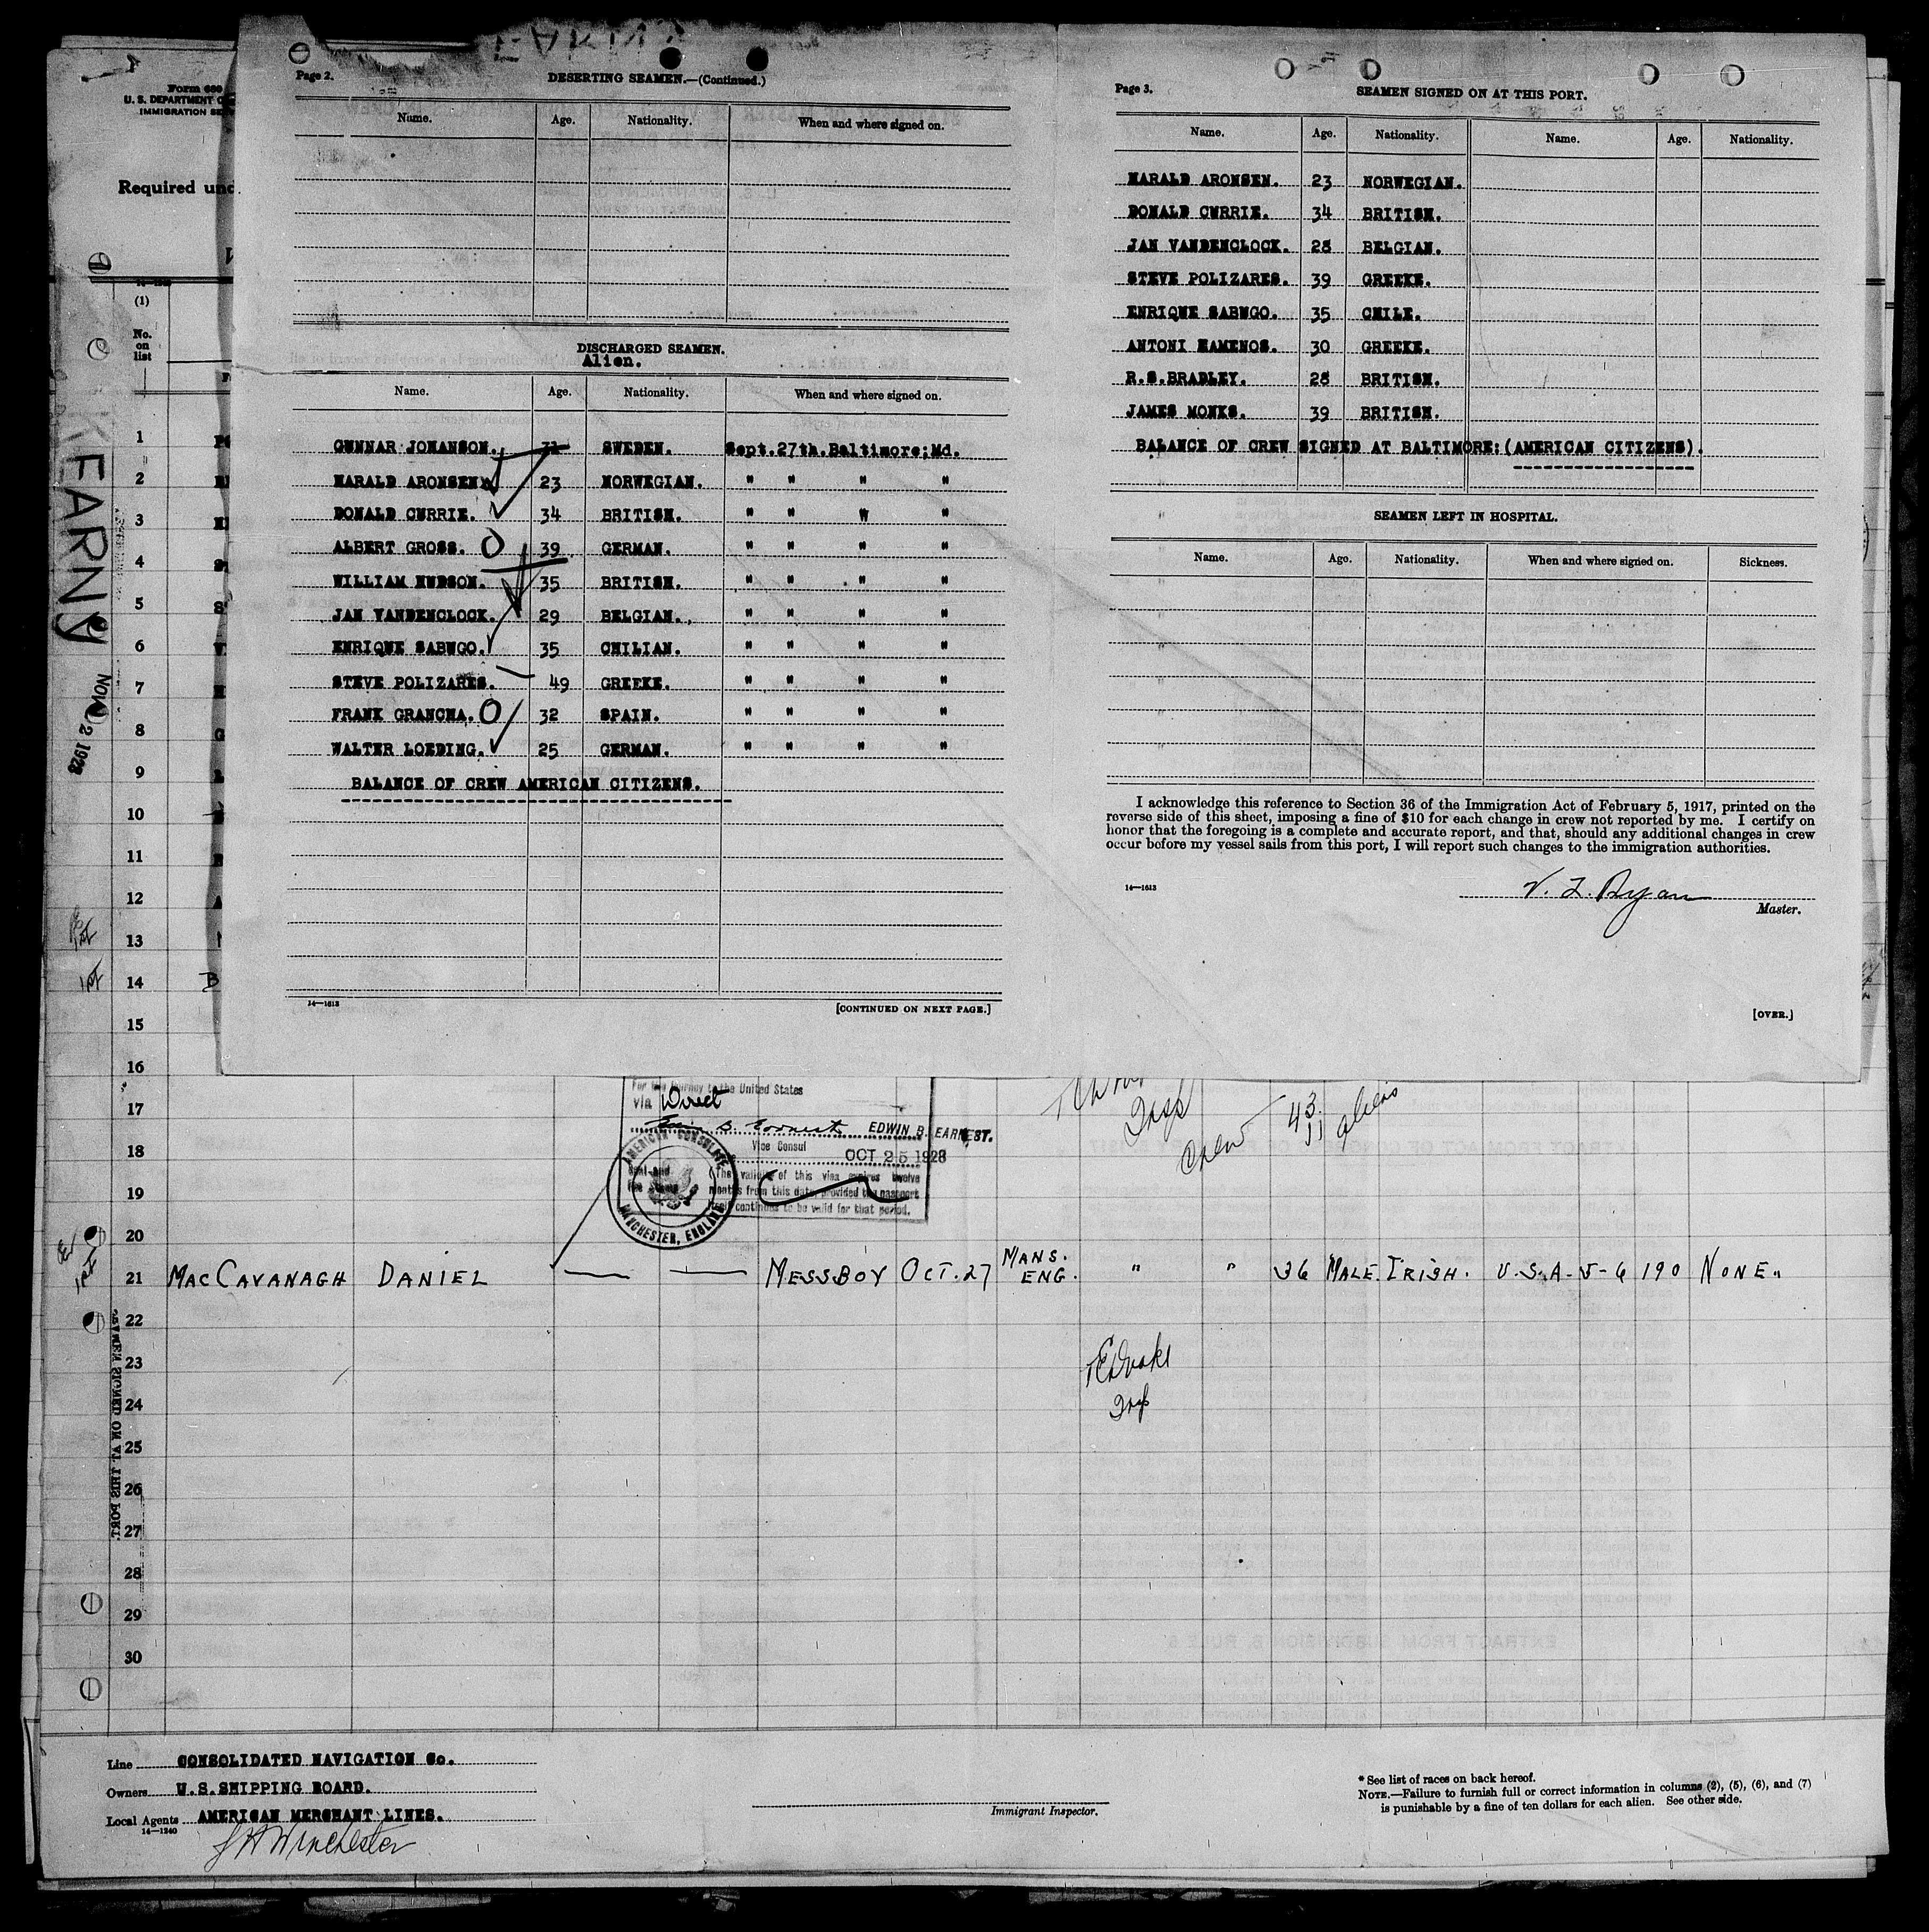 Form 680
U. S. DEPARTMENT O
IMMIGRATION SER
Required und
(1)
No.
on
list
KEARNY
NOV 2 1928
Page 2.
DESERTING SEAMEN.—(Continued.)
Name. Age. Nationality. When and where signed on.
DISCHARGED SEAMEN.
Alien.
Name. Age. Nationality. When and where signed on.
GUNNAR JOHANSON. 31 SWEDEN. Sept.27th.Baltimore;Md.
HARALD ARONSEN. 23 NORWEGIAN. " " " "
DONALD CURRIE. 34 BRITISH. " " " "
ALBERT GROSS. 39 GERMAN. " " " "
WILLIAM HUDSON. 35 BRITISH. " " " "
JAN VANDENCLOCK. 29 BELGIAN. " " " "
ENRIQUE SABUGO. 35 CHILIAN. " " " "
STEVE POLIZARES. 49 GREEKE. " " " "
FRANK GRANCHA. 32 SPAIN. " " " "
WALTER LOEDING. 25 GERMAN. " " " "
BALANCE OF CREW AMERICAN CITIZENS.
14—1613
[CONTINUED ON NEXT PAGE.]
Page 3.
SEAMEN SIGNED ON AT THIS PORT.
Name. Age. Nationality. Name. Age. Nationality.
HARALD ARONSEN. 23 NORWEGIAN.
DONALD CURRIE. 34 BRITISH.
JAN VANDENCLOCK. 28 BELGIAN.
STEVE POLIZARES. 39 GREEKE.
ENRIQUE SABUGO. 35 CHILE.
ANTONI HAMENOS. 30 GREEKE.
R.S.BRADLEY. 28 BRITISH.
JAMES MONKS. 39 BRITISH.
BALANCE OF CREW SIGNED AT BALTIMORE:(AMERICAN CITIZENS).
SEAMEN LEFT IN HOSPITAL.
Name. Age. Nationality. When and where signed on. Sickness.
I acknowledge this reference to Section 36 of the Immigration Act of February 5, 1917, printed on the
reverse side of this sheet, imposing a fine of $10 for each change in crew not reported by me. I certify on
honor that the foregoing is a complete and accurate report, and that, should any additional changes in crew
occur before my vessel sails from this port, I will report such changes to the immigration authorities.
14—1613
V. L. Ryan
Master.
[OVER.]
1
2
3
4
5
6
7
8
9
10
11
12
13
14 B
15
16
17
18
19
20
For the journey to the United States
via Direct
EDWIN B. EARNEST.
Vice Consul
OCT 25 1928
(The validity of this visa expires twelve
months from this date, provided the passport
itself continues to be valid for that period.
AMERICAN CONSULATE
MANCHESTER, ENGLAND
Insp
Crew 43
11 aliens
21 MACCAVANAGH DANIEL — — MESSBOY OCT. 27 MANS. ENG. " " 36 MALE. IRISH. U.S.A. 5-6 190 NONE.
22
23
24
Insp
25
26
27
28
29
30
SEAMEN SIGNED ON AT THIS PORT.
Line CONSOLIDATED NAVIGATION Co.
Owners U.S.SHIPPING BOARD.
Local Agents AMERICAN MERCHANT LINES.
14—1240
J H Winchester
Immigrant Inspector.
* See list of races on back hereof.
NOTE.—Failure to furnish full or correct information in columns (2), (5), (6), and (7)
is punishable by a fine of ten dollars for each alien. See other side.